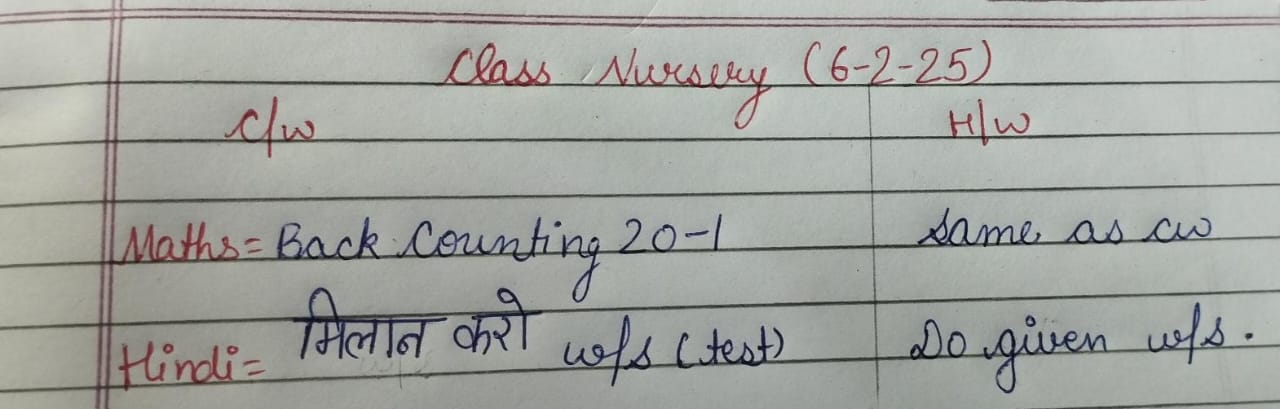 Class Nursery (6-2-25)
C/w H/W
Maths = Back Counting 20-1 Same as cw
Hindi = मिलान करो w/s (test) Do given w/s.